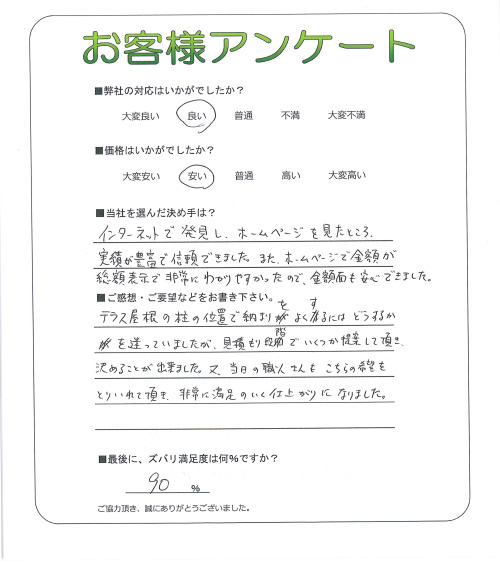 お客様アンケート
■弊社の対応はいかがでしたか？
大変良い 良い 普通 不満 大変不満
■価格はいかがでしたか？
大変安い 安い 普通 高い 大変高い
■当社を選んだ決め手は？
インターネットで発見し、ホームページを見たところ、
実績が豊富で信頼できました。また、ホームページで金額が
総額表示で非常にわかりやすかったので、金額面も安心できました。
■ご感想・ご要望などをお書き下さい。
テラス屋根の柱の位置で納まりをよくするにはどうするか
を迷っていましたが、見積もり段階でいくつか提案して頂き、
決めることが出来ました。又、当日の職人さんもこちらの希望を
とりいれて頂き、非常に満足のいく仕上がりになりました。
■最後に、ズバリ満足度は何%ですか？
90 %
ご協力頂き、誠にありがとうございました。